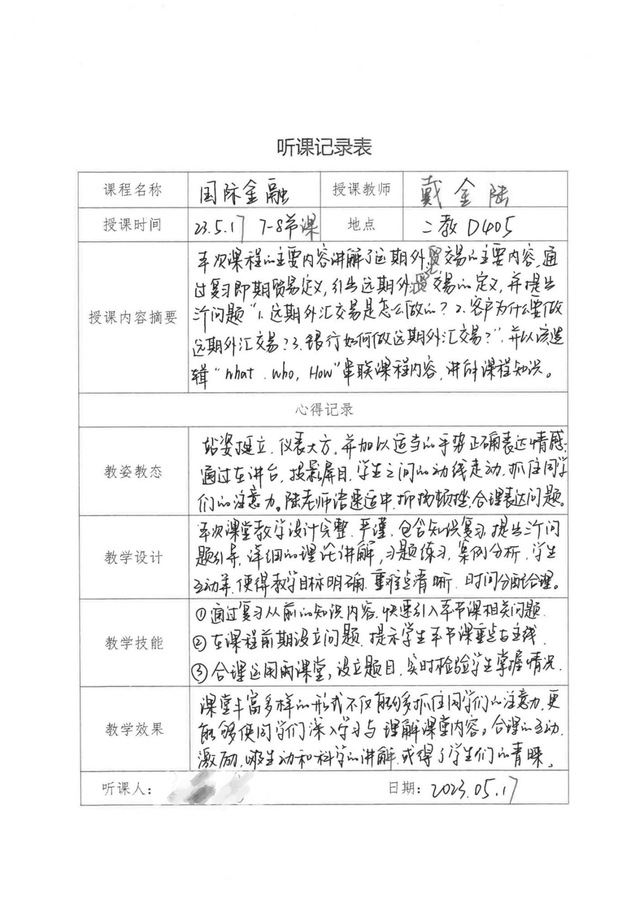 听课记录表
课程名称 国际金融 授课教师 戴金陆
授课时间 23.5.17 7-8节课 地点 二教D405
本次课程的主要内容讲解了远期外贸交易的主要内容,通
过复习即期贸易定义,引出远期外汇交易的定义,并提出
授课内容摘要 三个问题“1.远期外汇交易是怎么做的?2.客户为什么要做
远期外汇交易?3.银行如何做远期外汇交易?”,并以该逻
辑“What、who、How”串联课程内容,讲解课程知识。
心得记录
站姿挺立、仪表大方,并加以适当的手势正确表达情感
教姿教态 通过在讲台、投影屏目、学生之间的动线走动,抓住同学
们的注意力。陆老师语速适中,抑扬顿挫,合理表达问题。
本次课堂教学设计完整、严谨,包含知识复习、提出三个问
教学设计 题引导、详细的理论讲解、习题练习、案例分析、学生
互动等,使得教学目标明确、重难点清晰、时间分配合理。
①通过复习从前的知识内容,快速引入本节课相关问题
教学技能 ②在课程前期设立问题,提示学生本节课重点与主线
③合理运用雨课堂,设立题目,实时检验学生掌握情况
课堂丰富多样的形式不仅能够抓住同学们的注意力,更
教学效果 能够使同学们深入学习与理解课堂内容。合理的互动、
激励,生动和科学的讲解,获得了学生们的青睐。
听课人: 日期:2023.05.17